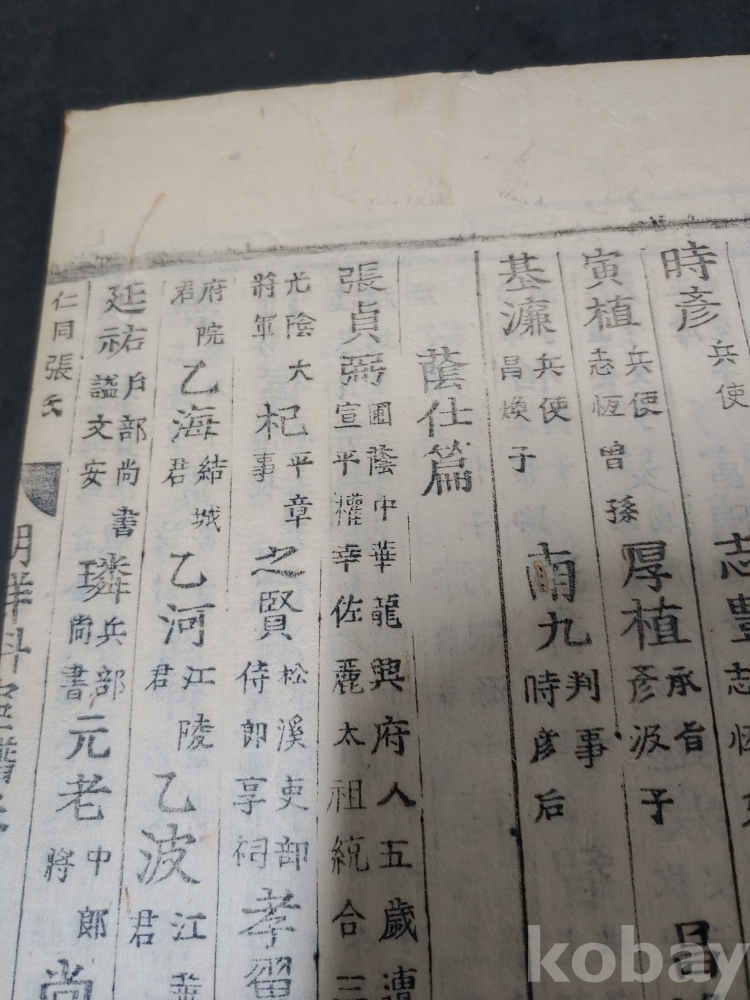 時彦 兵使 志豊 志恆
寅植 兵使志恆曾孫 厚植 承旨彦汲子 昌
基濂 兵使昌煥子 南九 判事時彦后
蔭仕篇
張貞弼 圃蔭中華龍興府人五歲 宣平權幸佐麗太祖統合三
尤蔭大將軍 杞 平章事 之賢 松溪吏部侍郎享祠 孝留
府院君 乙海 結城君 乙河 江陵君 乙波 江 君
延祐 戶部尚書謚文安 璘 兵部尚書 元老 中郎將 尚
仁同張氏
kobay